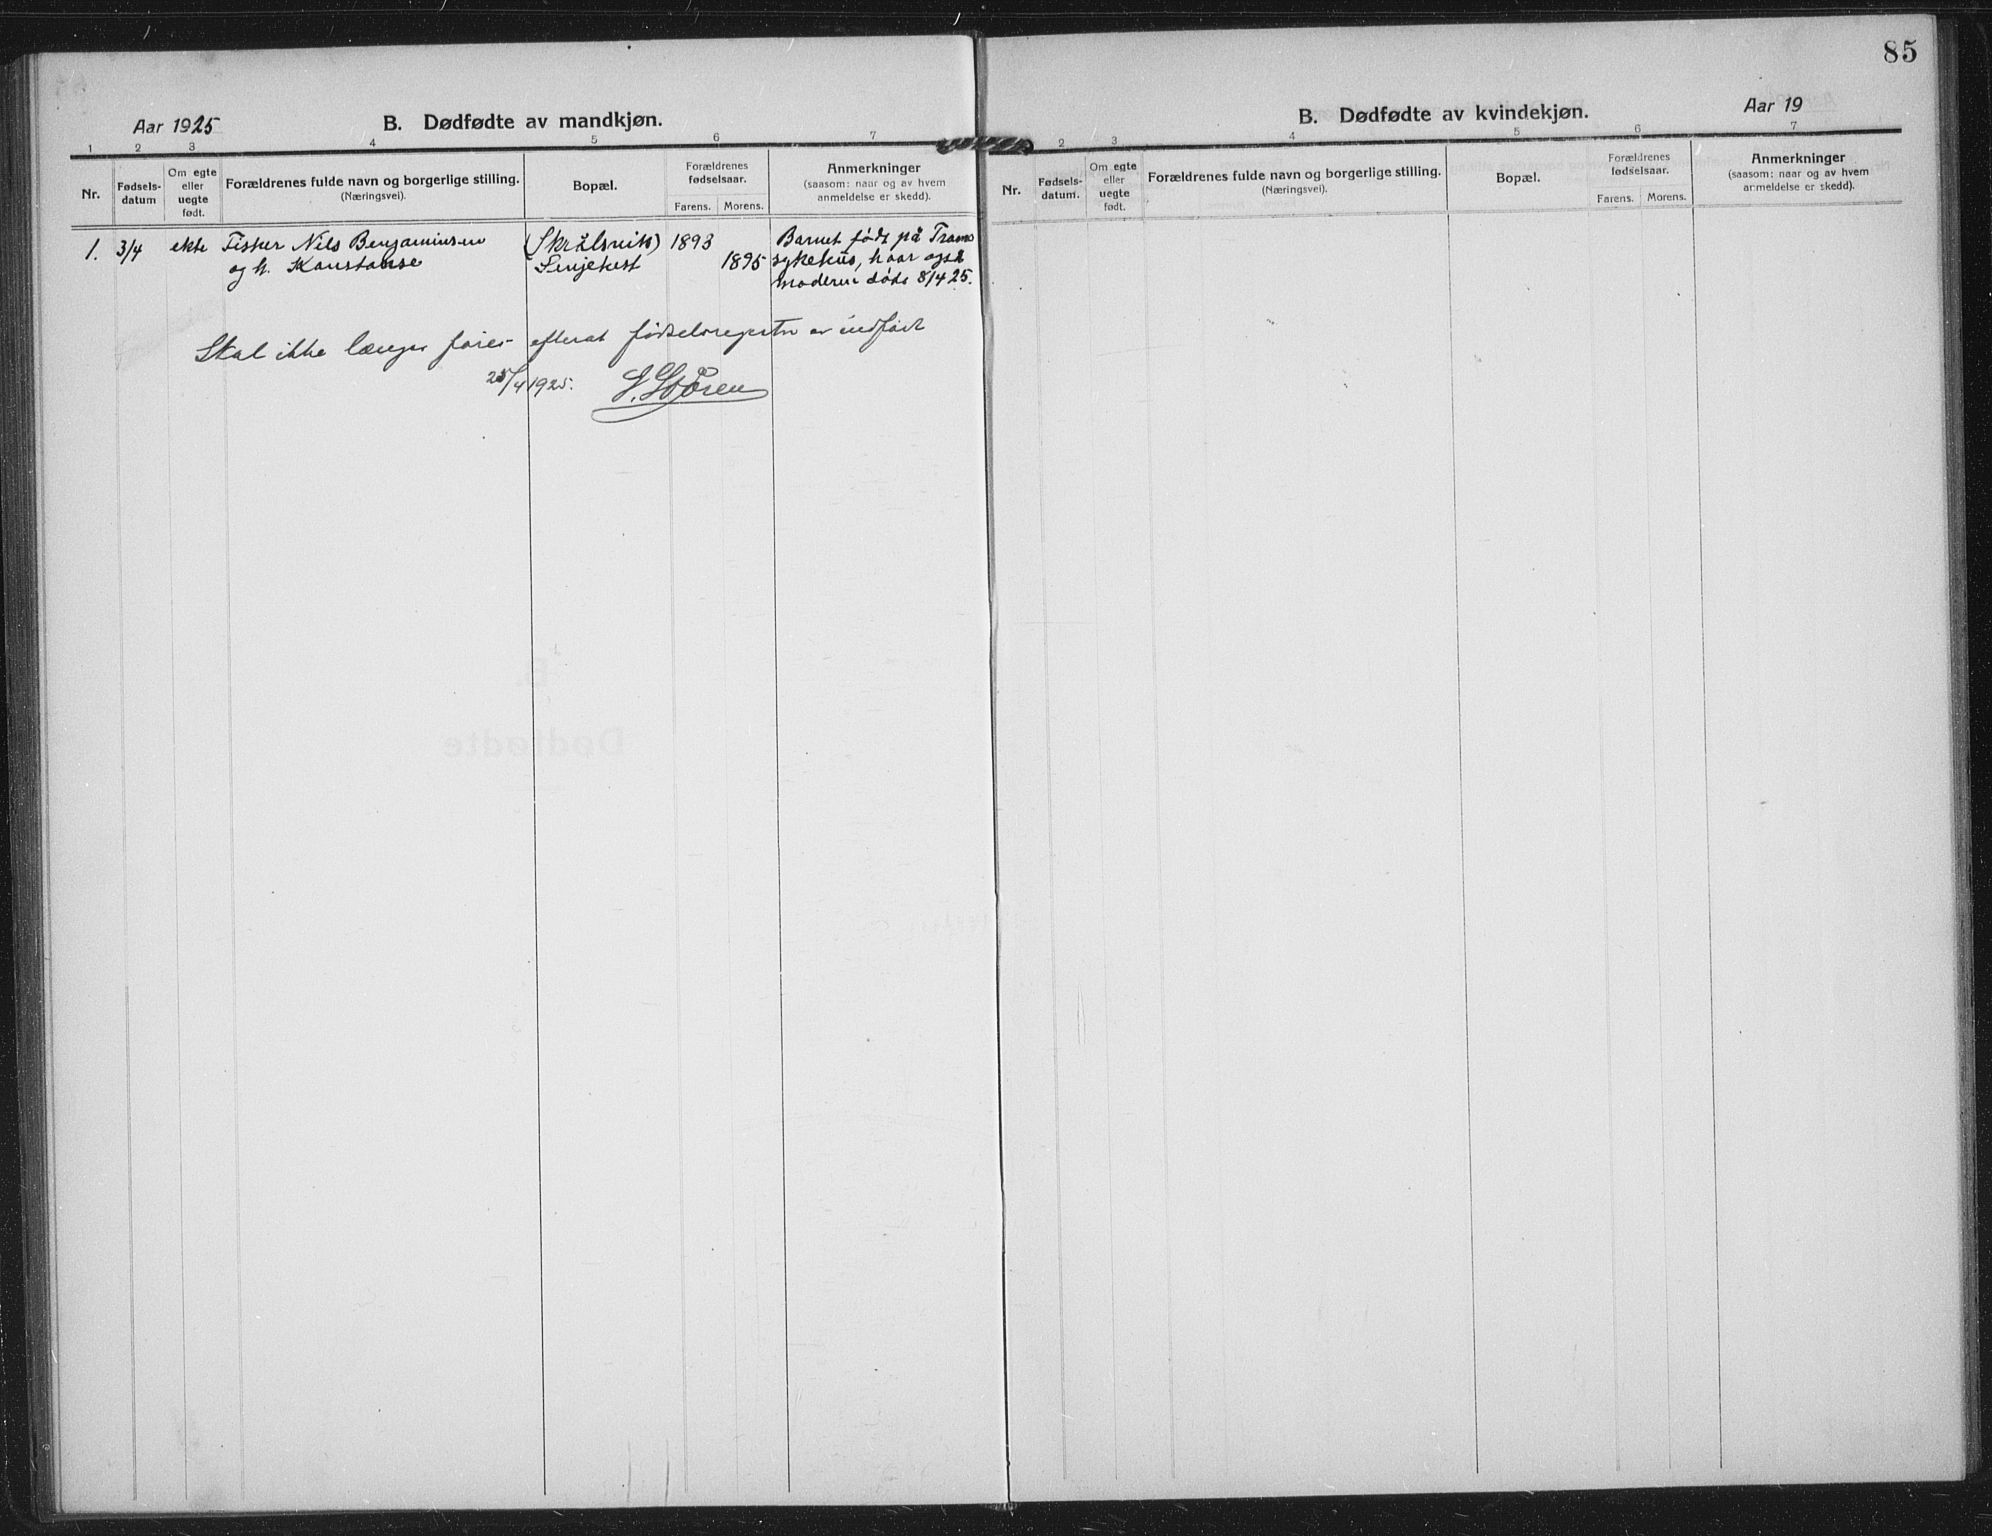 85
Aar 1925
B. Dødfødte av mandkjøn.
1 2 3 4 5 6 7
Nr.
Fødsels-
datum
Om egte
eller
uegte
født.
Forældrenes fulde navn og borgerlige stilling.
(Næringsvei).
Bopæl.
Forældrenes
fødselsaar.
Farens. Morens.
Anmerkninger
(saasom: naar og av hvem
anmeldelse er skedd).
1. 3/4 ekte Fisker Nils Benjaminsen (Skrålsvik) 1893 Barnet født på Troms
og h. Konstanse Senjehest 1895 sykehus, hvor også
moderen døde 8/4 25.
Skal ikke længer føres efterat fødselsregistr er indført
25/4 1925. S. Støren
B. Dødfødte av kvindekjøn.
Aar 19
2 3 4 5 6 7
Nr.
Fødsels-
datum.
Om egte
eller
uegte
født.
Forældrenes fulde navn og borgerlige stilling.
(Næringsvei).
Bopæl.
Forældrenes
fødselsaar.
Farens. Morens.
Anmerkninger
(saasom: naar og av hvem
anmeldelse er skedd).